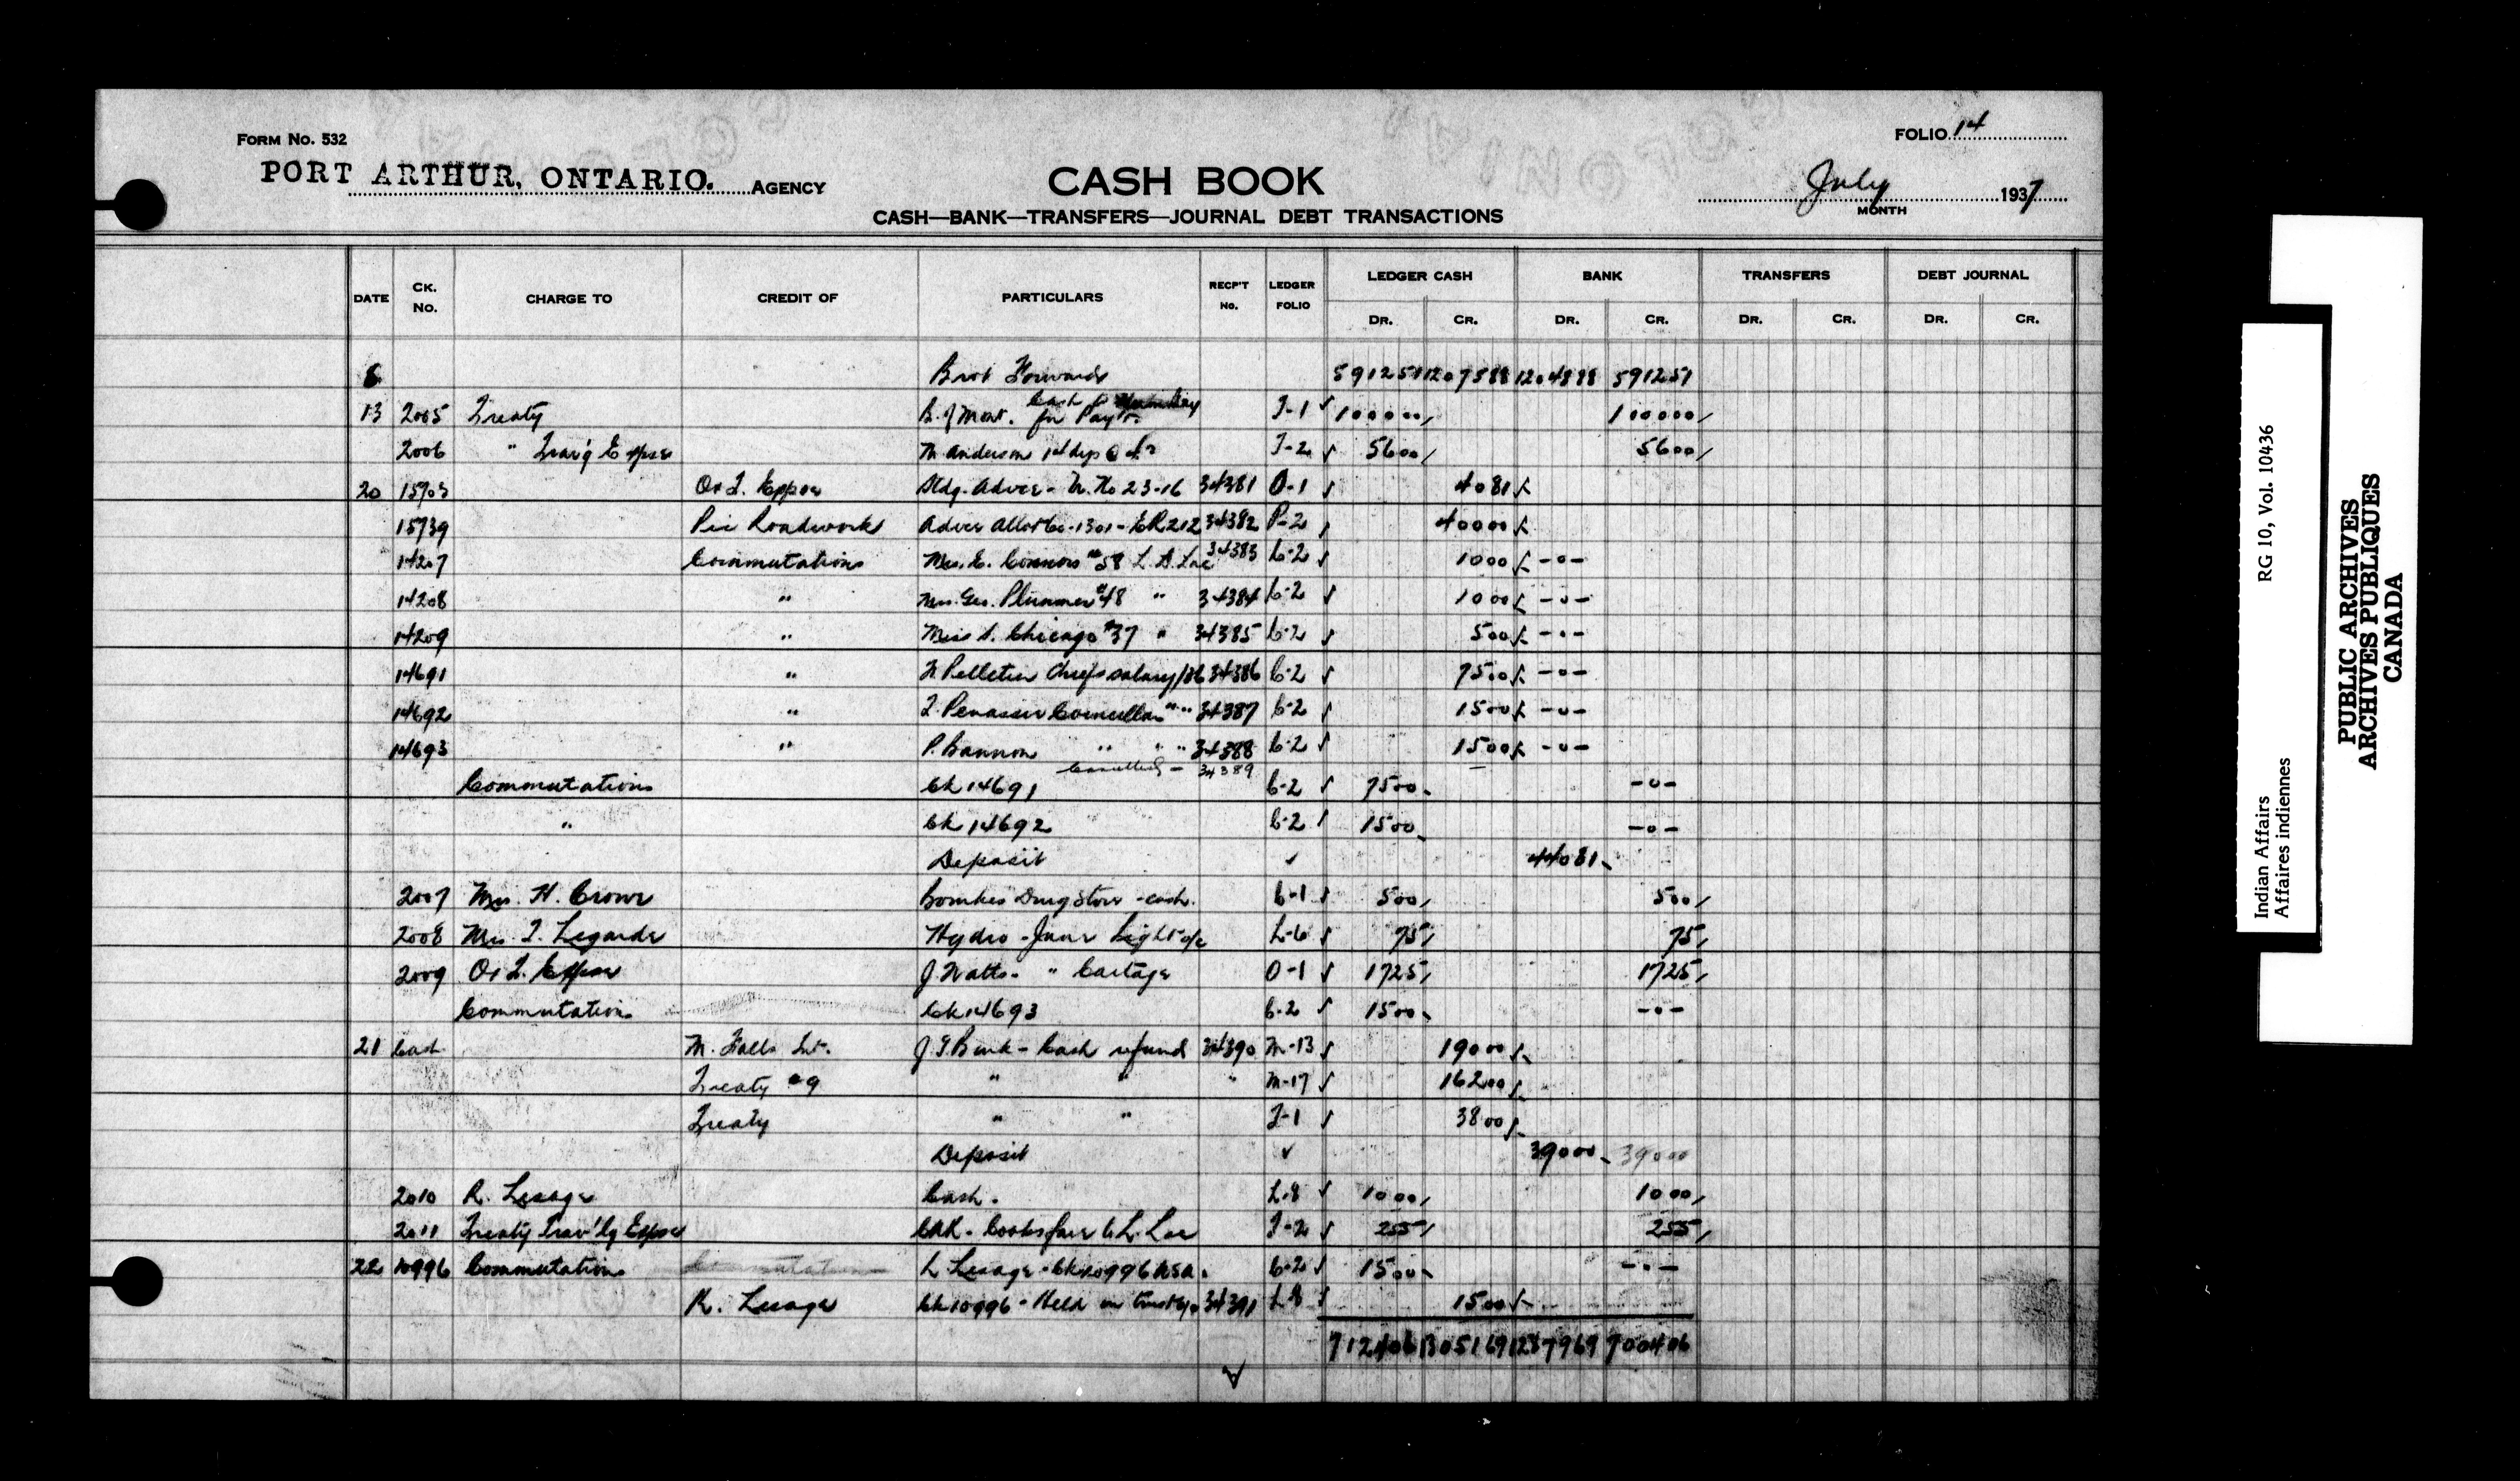 FORM NO. 532
FOLIO 14
PORT ARTHUR, ONTARIO. AGENCY
CASH BOOK
July 1937
MONTH
CASH—BANK—TRANSFERS—JOURNAL DEBT TRANSACTIONS
DATE CK. No. CHARGE TO CREDIT OF PARTICULARS RECP'T No. LEDGER FOLIO LEDGER CASH BANK TRANSFERS DEBT JOURNAL
DR. CR. DR. CR. DR. CR. DR. CR.
Brot Forwards 591251 1207588 1204888 591251
13 2005 Treaty B. of Mont. Cash for Payt. T-1 100000 100000
2006 " Trav'g Expse M. Anderson 14 dys @ T-2 5600 5600
20 15703 O & T. Expse Stdg. Advce - 23-16 34381 O-1 4081
15739 Pic Roadworks Advce 1301 - ER 212 34382 P-2 40000
14207 Commutations Mrs. E. Connors #58 L. Lac 34383 C-2 1000 -0-
14208 " Mrs. Geo. Plummer #48 " 34384 C-2 1000 -0-
14209 " Miss Chicago #37 " 34385 C-2 500 -0-
14691 " Pelletier Chief's salary 34386 C-2 7500 -0-
14692 " Councillor " " 34387 C-2 1500 -0-
14693 " P. Bannon " " " 34388 C-2 1500 -0-
Cancelled - 34389
Commutations Ck 14691 C-2 7500 -0-
" Ck 14692 C-2 1500 -0-
Deposit 44081
2007 Mrs. H. Crowe Drug Store - cash. C-1 500 500
2008 Mrs. T. Legarde Hydro - June Light a/c L-6 75 75
2009 O & T. Expse J. Watts - " Cartage O-1 1725 1725
Commutations Ck 14693 C-2 1500 -0-
21 Cash M. Falls Int. J.G. Burk - Cash refund 34390 M-13 19000
Treaty #9 " " " M-17 16200
Treaty " " T-1 3800
Deposit 39000 39000
2010 R. Lesage Cash. L-8 1000 1000
2011 Treaty Trav'lg Expse L. Lac T-2 255 255
22 10996 Commutations L. Lesage - Ck 10996 C-2 1500 -0-
R. Lesage Ck 10996 - Held in trust 34391 L-8 1500
712406 1305169 1287969 700406
Indian Affairs RG 10, Vol. 10436
Affaires indiennes
PUBLIC ARCHIVES
ARCHIVES PUBLIQUES
CANADA